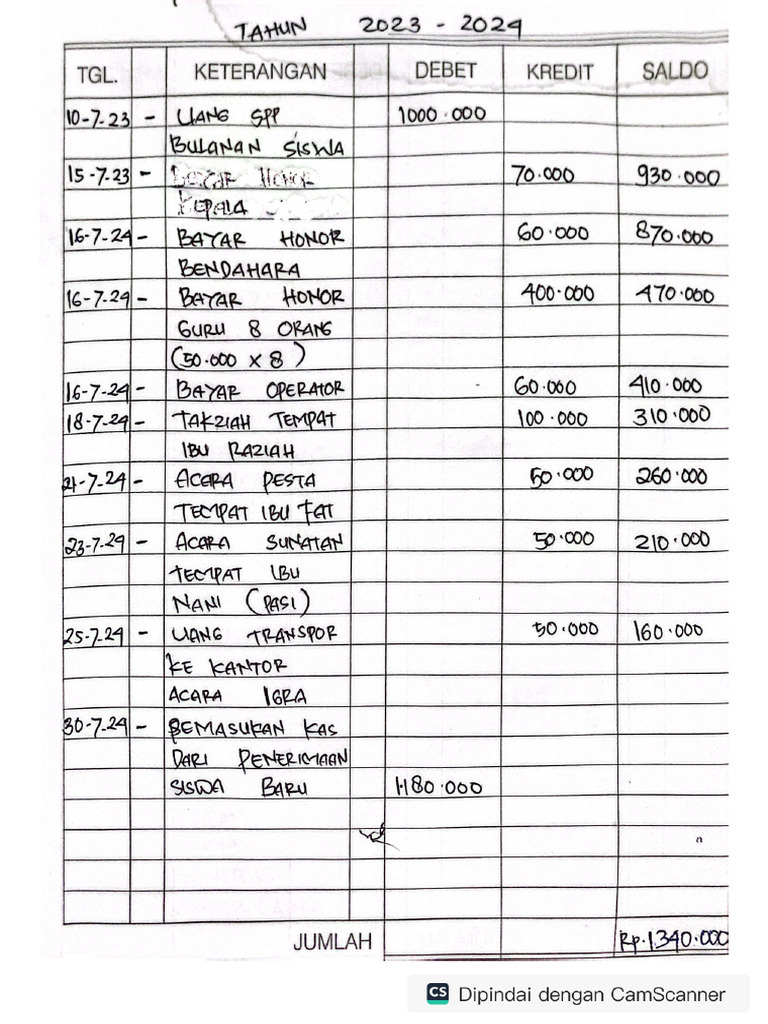 TAHUN 2023 - 2024
TGL. KETERANGAN DEBET KREDIT SALDO
10-7-23 - UANG SPP 1000.000
BULANAN SISWA
15-7-23 - BAYAR HONOR 70.000 930.000
KEPALA
16-7-24 - BAYAR HONOR 60.000 870.000
BENDAHARA
16-7-24 - BAYAR HONOR 400.000 470.000
GURU 8 ORANG
(50.000 X 8)
16-7-24 - BAYAR OPERATOR 60.000 410.000
18-7-24 - TAKZIAH TEMPAT 100.000 310.000
IBU RAZIAH
21-7-24 - ACARA PESTA 50.000 260.000
TEMPAT IBU FAT
23-7-24 - ACARA SUNATAN 50.000 210.000
TEMPAT IBU
NANI (PASI)
25-7-24 - UANG TRANSPOR 50.000 160.000
KE KANTOR
ACARA IGRA
30-7-24 - PEMASUKAN KAS
DARI PENERIMAAN
SISWA BARU 1.180.000
JUMLAH Rp.1.340.000
CS Dipindai dengan CamScanner